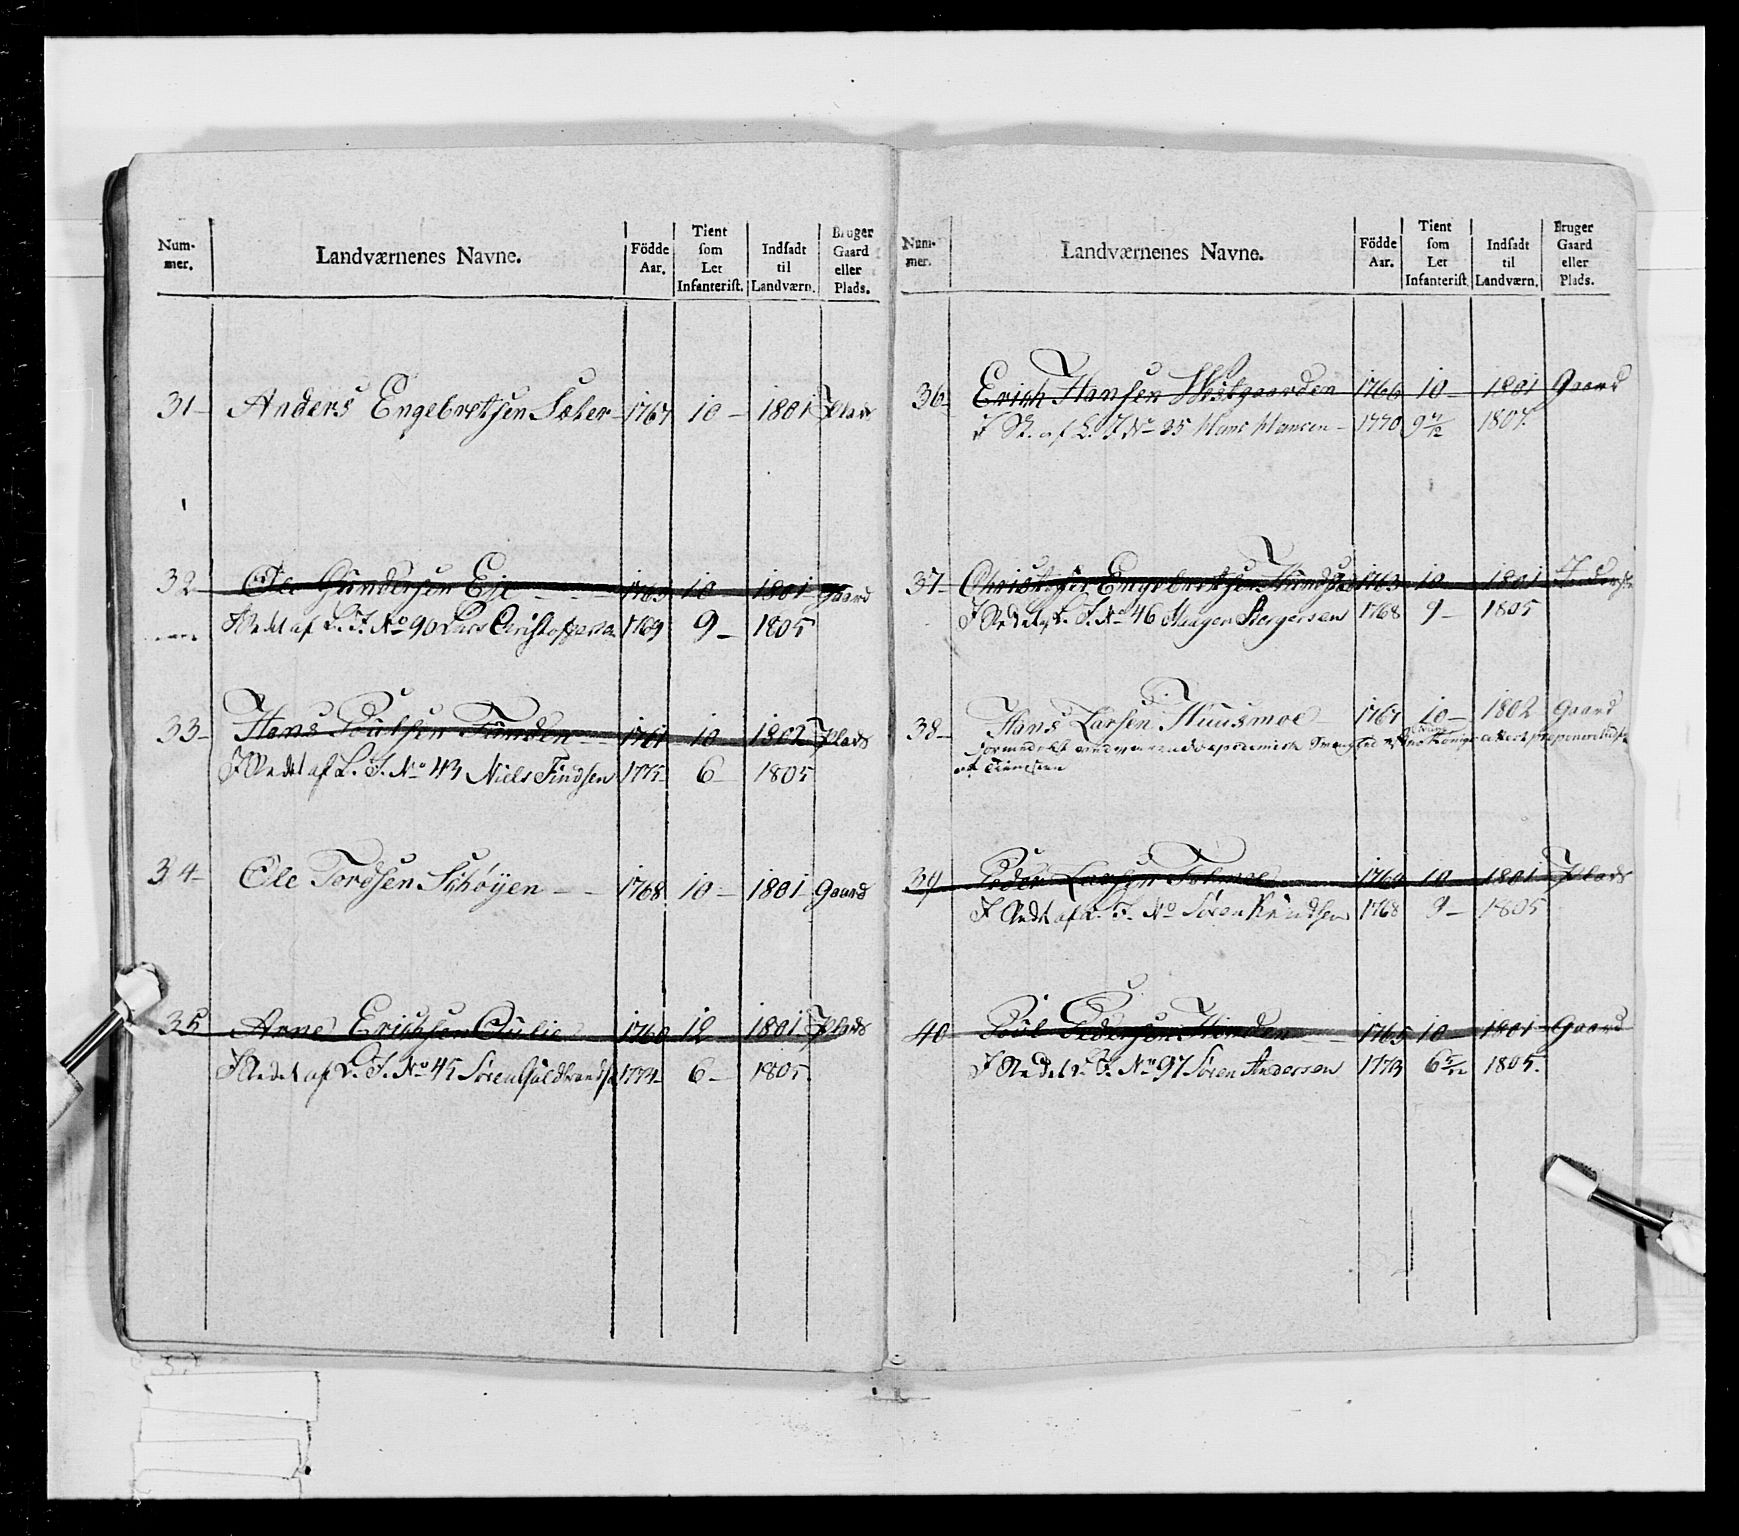 Num-
mer.
Landværnenes Navne.
Födde
Aar.
Tient
som
Let
Infanterist.
Indsadt
til
Landværn.
Bruger
Gaard
eller
Plads.
31 Anders Engebretsen Sæter 1767 10 1801 Plads
32 Ole Gundersen Eje 1765 10 1801 Gaard
I Stedet af L. I. No 90 Lars Christophersen 1769 9 1805
33 Hans Poulsen Tunden 1761 10 1802 Plads
I Stedet af L. I. No 43 Niels Findsen 1775 6 1805
34 Ole Tordsen Schøyen 1768 10 1801 Gaard
35 Arne Erichsen 1760 12 1801 Plads
I Stedet af L. I. No 45 Søren Guldbrandse 1774 6 1805
Num-
mer.
Landværnenes Navne.
Födde
Aar.
Tient
som
Let
Infanterist.
Indsadt
til
Landværn.
Bruger
Gaard
eller
Plads.
36 Erich Hansen Westgaarden 1766 10 1801 Gaard
I St. af L. I No 35 Hans Hansen 1770 9 1807
37 Christopher Engebretsen 1763 10 1801
I Stedet af L. I. No 46 Haagen Børgersen 1768 9 1805
38 Hans Larsen Huusmoe 1767 10 1802 Gaard
af Tienesten
39 Peder Larsen 1764 10 1801 Plads
I Stedet af L. I. No Søren Knudsen 1768 9 1805
40 Poul Pedersen 1765 10 1801 Gaard
I Stedet L. I. No 97 Søren Andersen 1773 6 5/12 1805